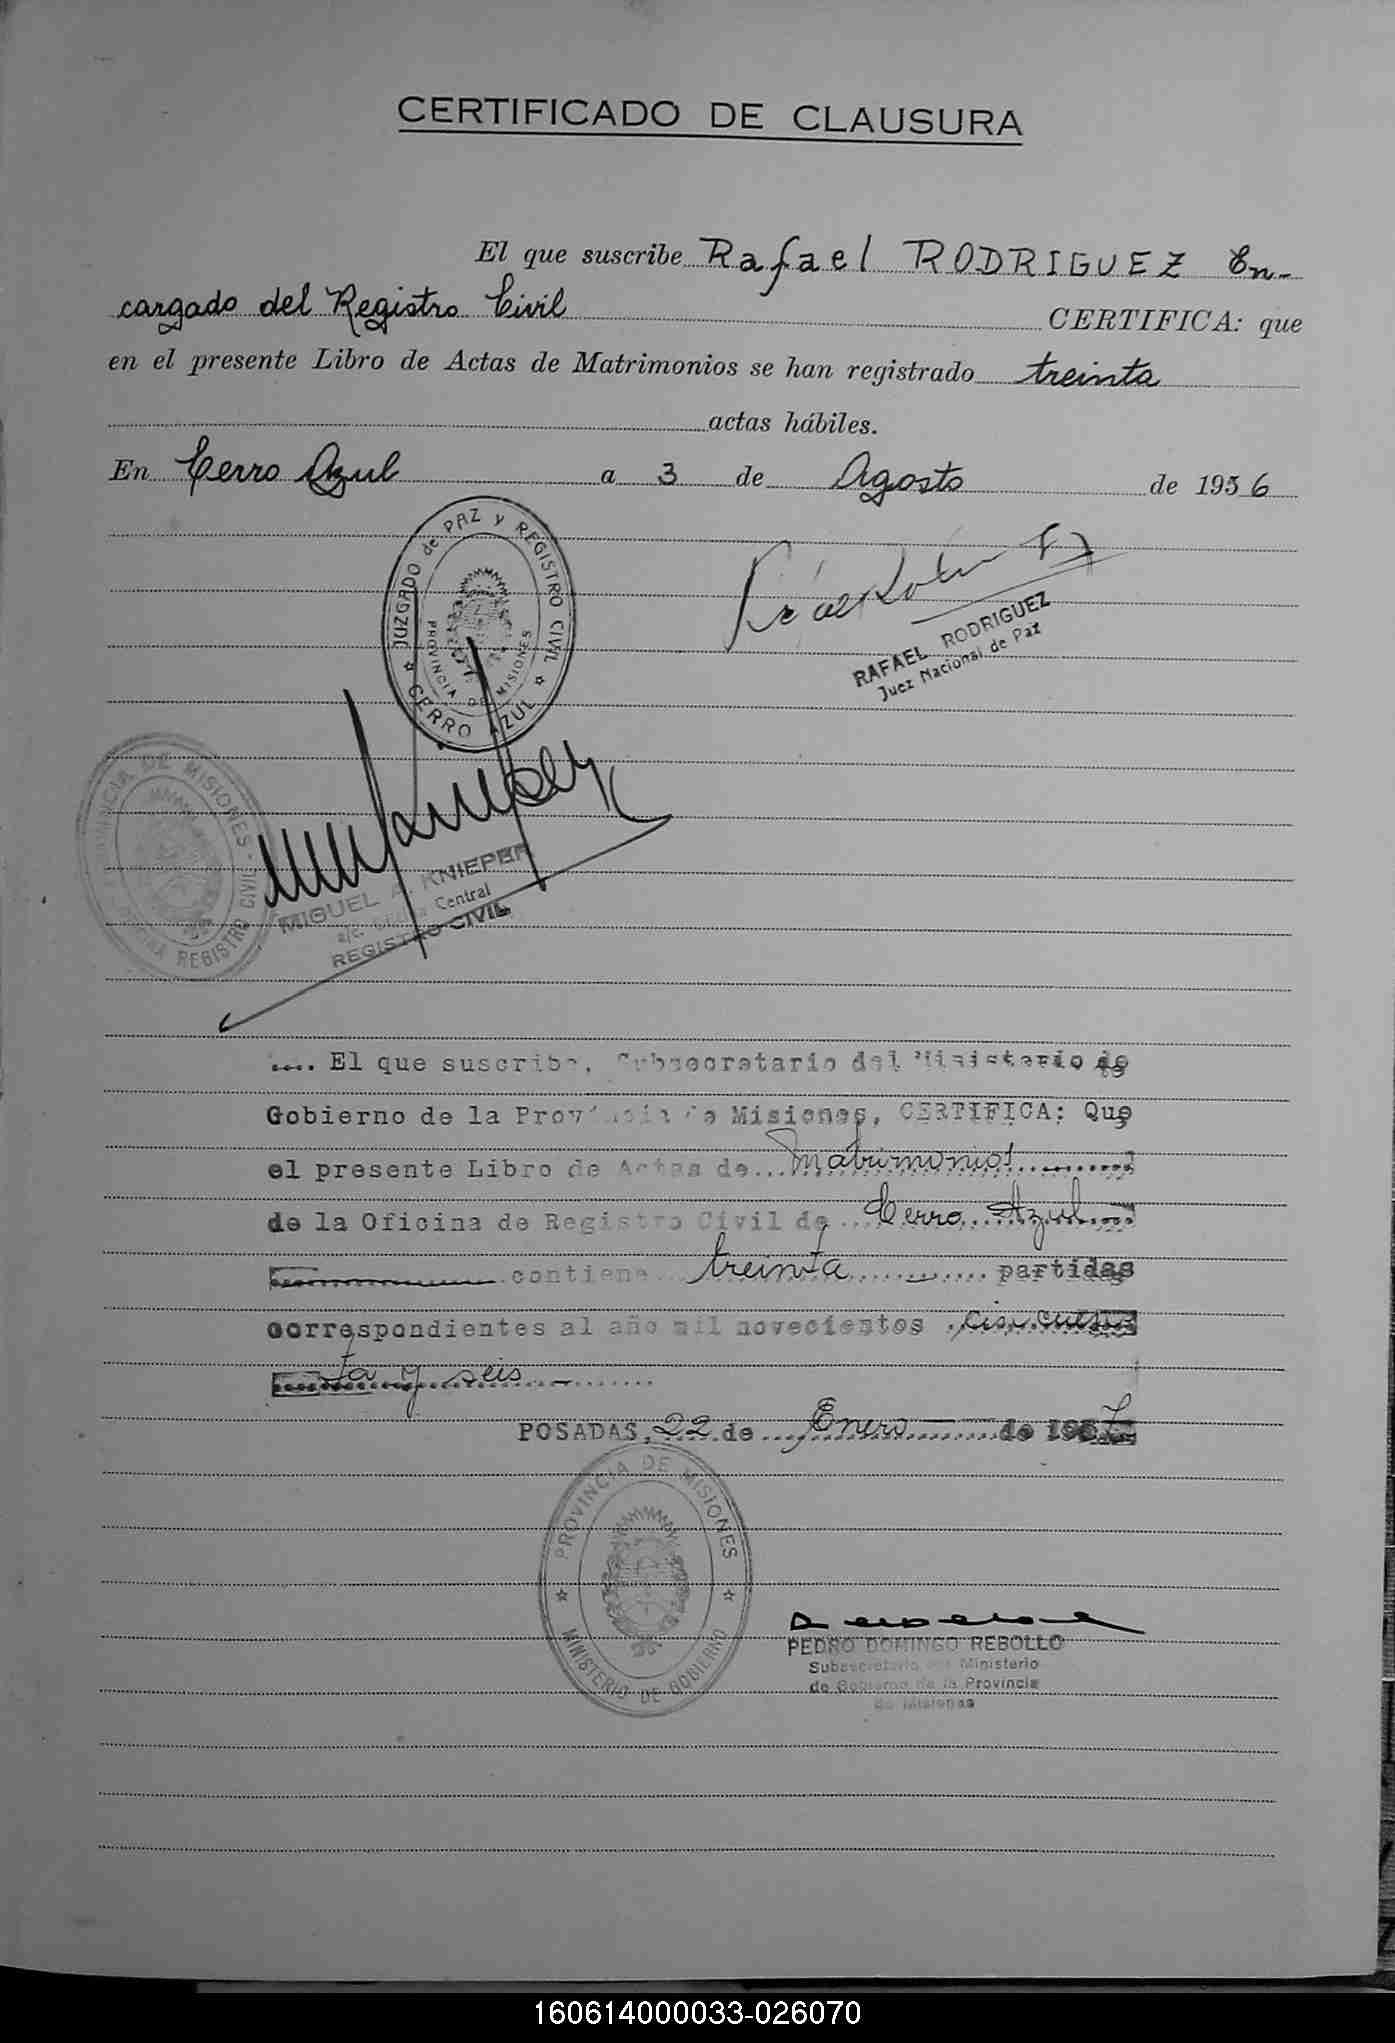 CERTIFICADO DE CLAUSURA
El que suscribe Rafael RODRIGUEZ En-
cargado del Registro Civil CERTIFICA: que
en el presente Libro de Actas de Matrimonios se han registrado treinta
actas hábiles.
En Cerro Azul a 3 de Agosto de 1956
JUZGADO de PAZ y REGISTRO CIVIL
PROVINCIA DE MISIONES
CERRO AZUL
RAFAEL RODRIGUEZ
Juez Nacional de Paz
PROVINCIA DE MISIONES
REGISTRO CIVIL
MIGUEL A. KNIEPER
Central
REGISTRO CIVIL
.... El que suscribe, Subsecretario del Ministerio de
Gobierno de la Provincia de Misiones, CERTIFICA: Que
el presente Libro de Actas de Matrimonios
de la Oficina de Registro Civil de Cerro Azul
contiene treinta partidas
correspondientes al año mil novecientos cincuen
ta y seis
POSADAS, 22 de Enero de 1957
PROVINCIA DE MISIONES
MINISTERIO DE GOBIERNO
PEDRO DOMINGO REBOLLO
Subsecretario del Ministerio
de Gobierno de la Provincia
de Misiones
160614000033-026070